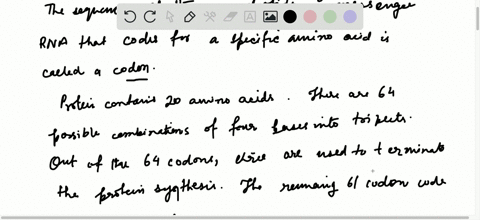 The
RNA that codes for a specific amino acid is
called a codon.
Protein contains 20 amino acids. There are 64
possible combinations of four bases into
Out of the 64 codons, are used to terminate
the protein The 61 codon code